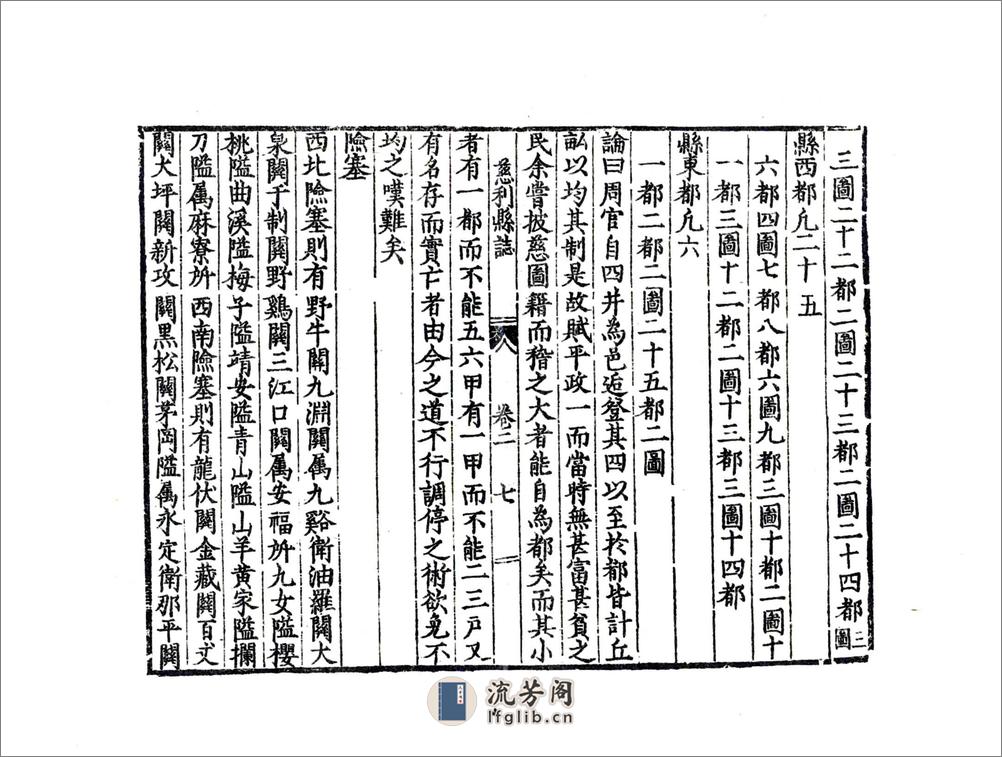 三圖二十二都二圖二十三都二圖二十四都三圖
縣西都凢二十五
六都四圖七都八都六圖九都三圖十都二圖十
一都三圖十二都二圖十三都三圖十四都
縣東都凢六
一都二都二圖二十五都二圖
論曰周官自四井為邑逅登其四以至於都皆計丘
畝以均其制是故賦平政一而當時無甚富甚貧之
民余嘗披慈圖籍而稽之大者能自為都矣而其小
慈利縣誌 卷二 七
者有一都而不能五六甲有一甲而不能二三戸又
有名存而實亡者由今之道不行調停之術欲免不
均之嘆難矣
險塞
西北險塞則有野牛關九淵關属九谿衛油羅關大
泉關于制關野鷄關三江口關属安福所九女隘櫻
桃隘曲溪隘梅子隘靖安隘青山隘山羊黄家隘攔
刀隘属麻寮所西南險塞則有龍伏關金藏關百丈
關大坪關新攻關黒松關茅岡隘属永定衛那平關
流芳阁
lfglib.cn